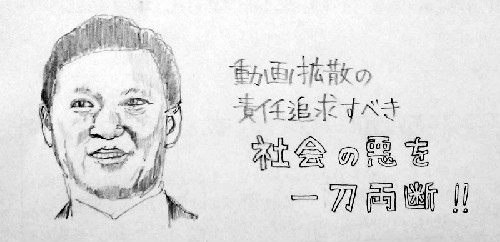 動画拡散の
責任追求すべき
社会の悪を
一刀両断!!